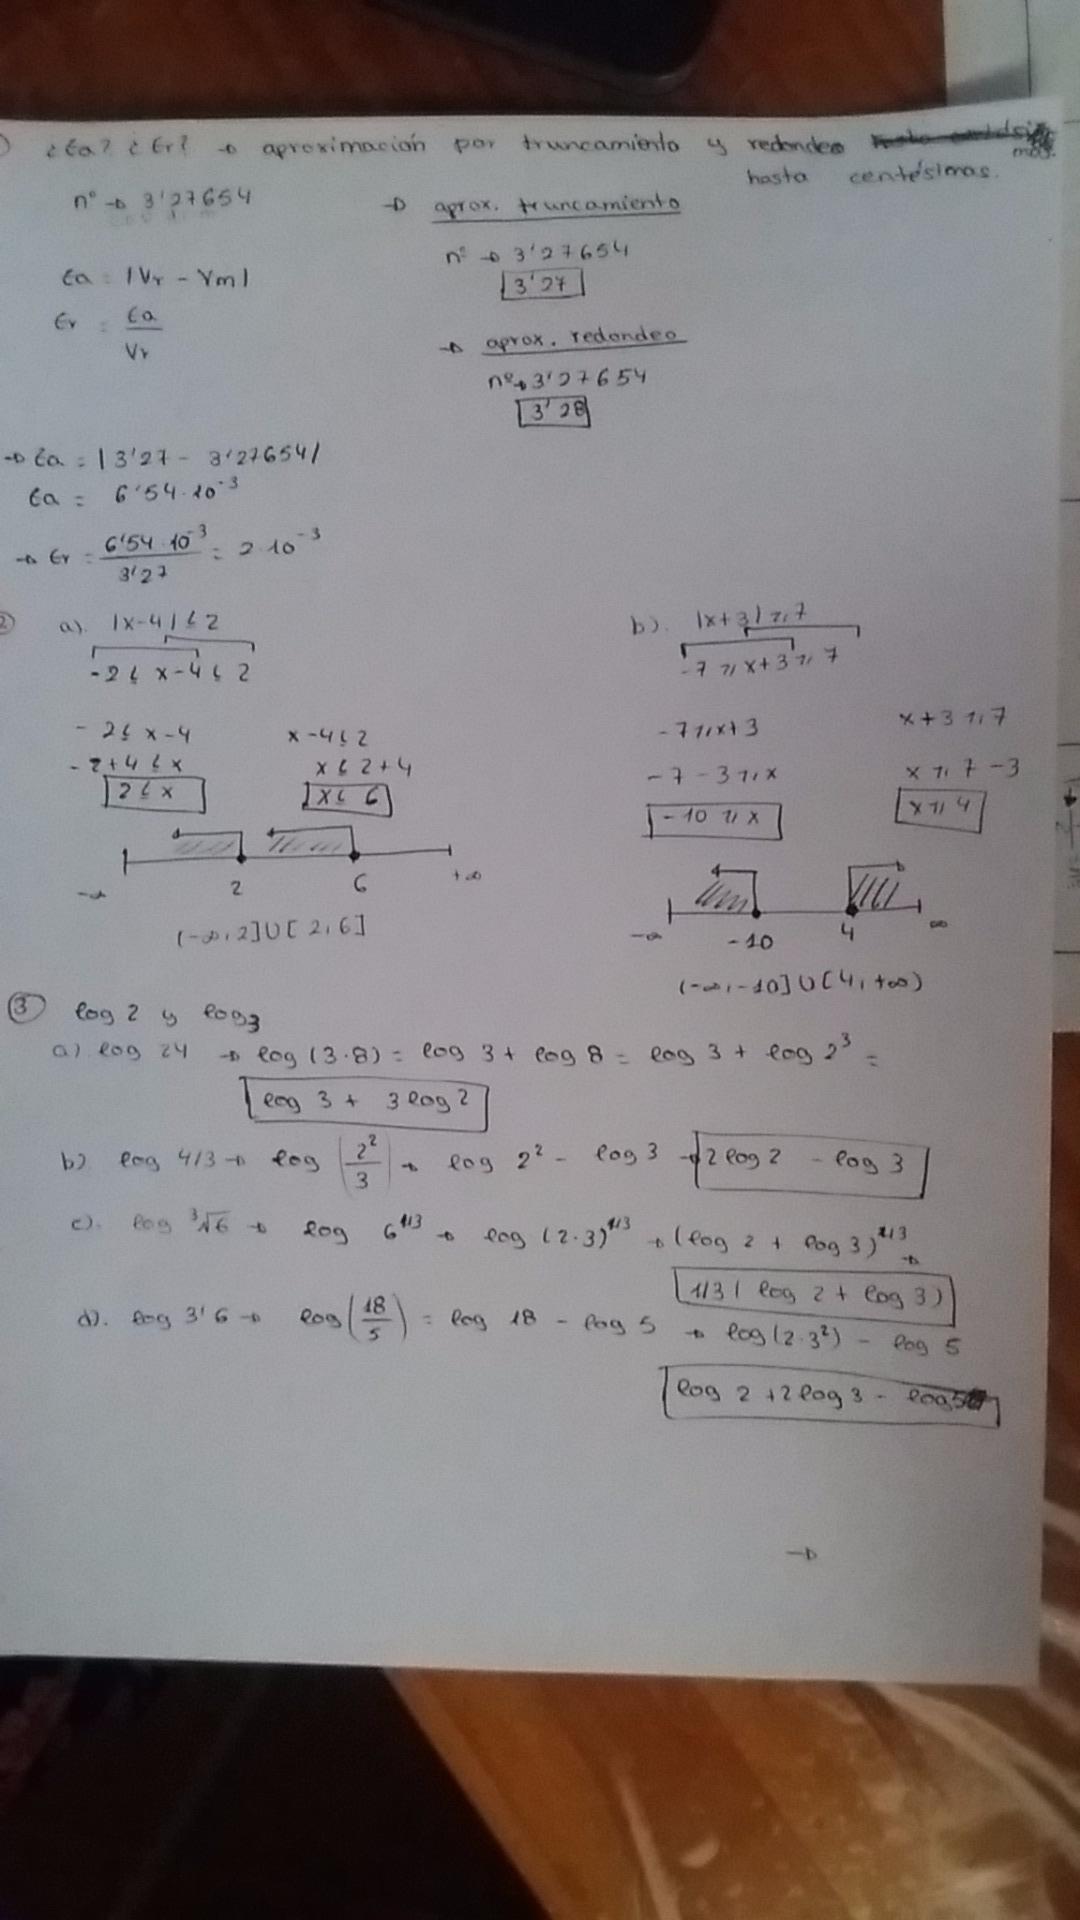 ¿Ea? ¿Er? → aproximación por truncamiento y redondeo
hasta centésimas.
nº → 3'27654
→ aprox. truncamiento
nº → 3'27654
3'27
Ea = |Vr - Vm|
Er = Ea/Vr
→ aprox. redondeo
nº → 3'27654
3'28
→ Ea = |3'27 - 3'27654|
Ea = 6'54·10⁻³
→ Er = 6'54·10⁻³/3'27 = 2·10⁻³
2 a). |x-4| ≤ 2
-2 ≤ x-4 ≤ 2
-2 ≤ x-4   x-4 ≤ 2
-2+4 ≤ x   x ≤ 2+4
2 ≤ x   x ≤ 6
-∞ 2 6 +∞
(-∞, 2] U [2, 6]
b). |x+3| ≥ 7
-7 ≥ x+3 ≥ 7
-7 ≥ x+3   x+3 ≥ 7
-7-3 ≥ x   x ≥ 7-3
-10 ≥ x   x ≥ 4
-∞ -10 4 ∞
(-∞, -10] U [4, +∞)
3 log 2 y log 3
a) log 24 → log (3·8) = log 3 + log 8 = log 3 + log 2³ =
log 3 + 3 log 2
b) log 4/3 → log (2²/3) → log 2² - log 3 → 2 log 2 - log 3
c). log ³√6 → log 6^1/3 → log (2·3)^1/3 → (log 2 + log 3)^1/3 →
1/3 ( log 2 + log 3)
d). log 3'6 → log (18/5) = log 18 - log 5 → log (2·3²) - log 5
log 2 + 2 log 3 - log 5
→